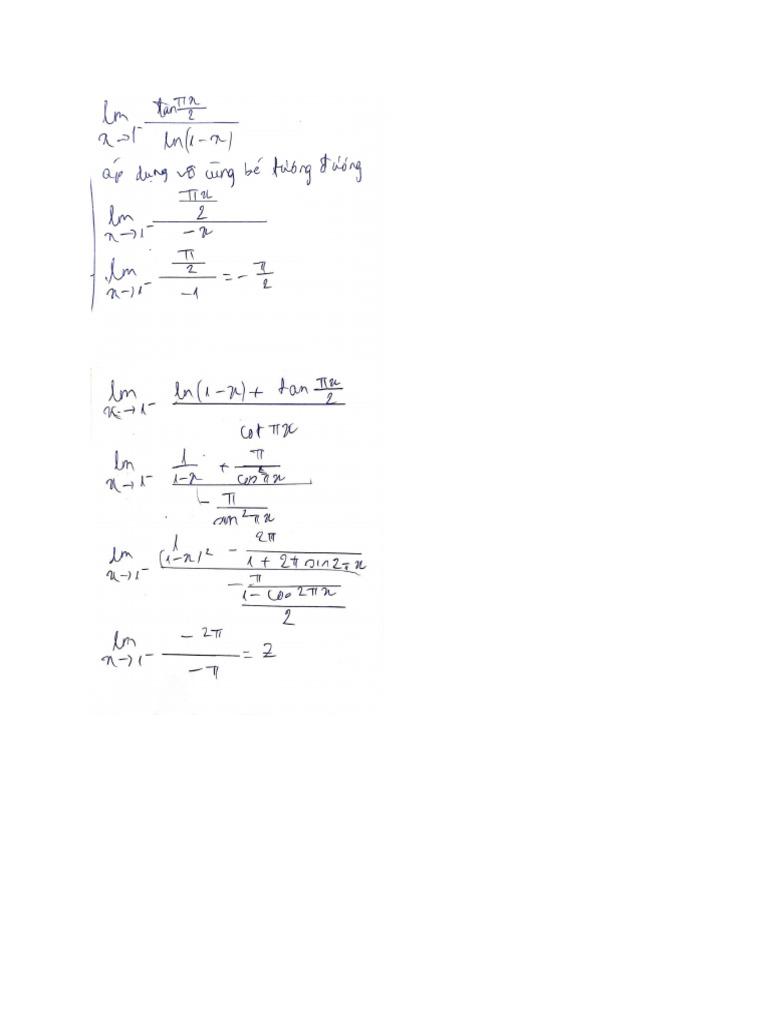 lim x→1⁻ (tan πx/2) / (ln(1-x))
áp dụng vô cùng bé tương đương
lim x→1⁻ (πx/2) / (-x)
lim x→1⁻ (π/2) / (-1) = - π/2
lim x→1⁻ (ln(1-x) + tan πx/2) / (cot πx)
lim x→1⁻ (1/(1-x) + π/(cos²πx)) / (- π/(sin²πx))
lim x→1⁻ (1/(1-x)² - 2π/(1 + 2π sin2πx)) / (- π/((1 - cos2πx)/2))
lim x→1⁻ (-2π) / (-π) = 2